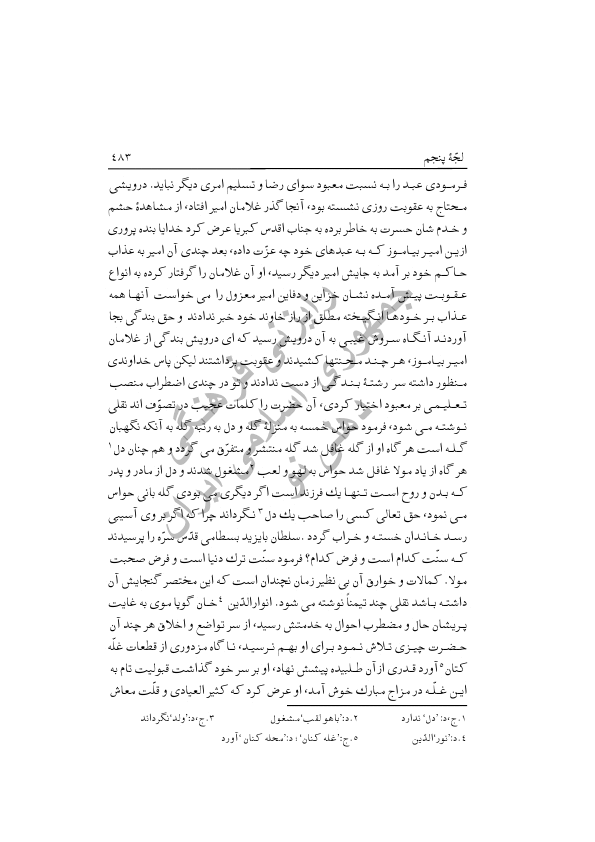 لجّهٔ پنجم
٤٨٣
فرمودی عبد را به نسبت معبود سوای رضا و تسلیم امری دیگر نباید. درویشی
محتاج به عقوبت روزی نشسته بود، آنجا گذر غلامان امیر افتاد، از مشاهدهٔ حشم
و خدم شان حسرت به خاطر برده به جناب اقدس کبریا عرض کرد خدایا بنده پروری
ازین امیر بیاموز که به عبدهای خود چه عزّت داده، بعد چندی آن امیر به عذاب
حاکم خود بر آمد به جایش امیر دیگر رسید، او آن غلامان را گرفتار کرده به انواع
عقوبت پیش آمده نشان خزاین و دفاین امیر معزول را می خواست آنها همه
عذاب بر خودها انگیخته مطلق از راز خاوند خود خبر ندادند و حق بندگی بجا
آوردند آنگاه سروش غیبی به آن درویش رسید که ای درویش بندگی از غلامان
امیر بیاموز، هر چند محنتها کشیدند و عقوبت برداشتند لیکن پاس خداوندی
منظور داشته سر رشتهٔ بندگی از دست ندادند و تو در چندی اضطراب منصب
تعلیمی بر معبود اختیار کردی، آن حضرت را کلمات عجیب در تصوّف اند نقلی
نوشته می شود، فرمود حواس خمسه به منزلهٔ گله و دل به رتبهٔ گله به آنکه نگهبان
گله است هر گاه او از گله غافل شد گله منتشر و متفرّق می گردد و هم چنان دل١
هر گاه از یاد مولا غافل شد حواس به لهو و لعب٢ مشغول شدند و دل از مادر و پدر
که بدن و روح است تنها یك فرزند است اگر دیگری می بودی گله بانی حواس
می نمود، حق تعالی کسی را صاحب یك دل٣ نگرداند چرا که اگر بر وی آسیبی
رسد خاندان خسته و خراب گردد .سلطان بایزید بسطامی قدّس سرّه را پرسیدند
که سنّت کدام است و فرض کدام؟ فرمود سنّت ترك دنیا است و فرض صحبت
مولا. کمالات و خوارق آن بی نظیر زمان نچندان است که این مختصر گنجایش آن
داشته باشد نقلی چند تیمناً نوشته می شود. انوارالدّین ٤خان گوپا موی به غایت
پریشان حال و مضطرب احوال به خدمتش رسید، از سر تواضع و اخلاق هر چند آن
حضرت چیزی تلاش نمود برای او بهم نرسید، نا گاه مزدوری از قطعات غلّه
کتان٥ آورد قدری از آن طلبیده پیشش نهاد، او بر سر خود گذاشت قبولیت تام به
این غلّه در مزاج مبارك خوش آمد، او عرض کرد که کثیر العیادی و قلّت معاش
١.ج،د:'دل' ندارد
٢.د:'باهو لقب'مشغول
٣.ج،د:'ولد'نگرداند
٤.د:'نور'الدّین
٥.ج:'غله کنان'؛ د:'محله کنان' آورد